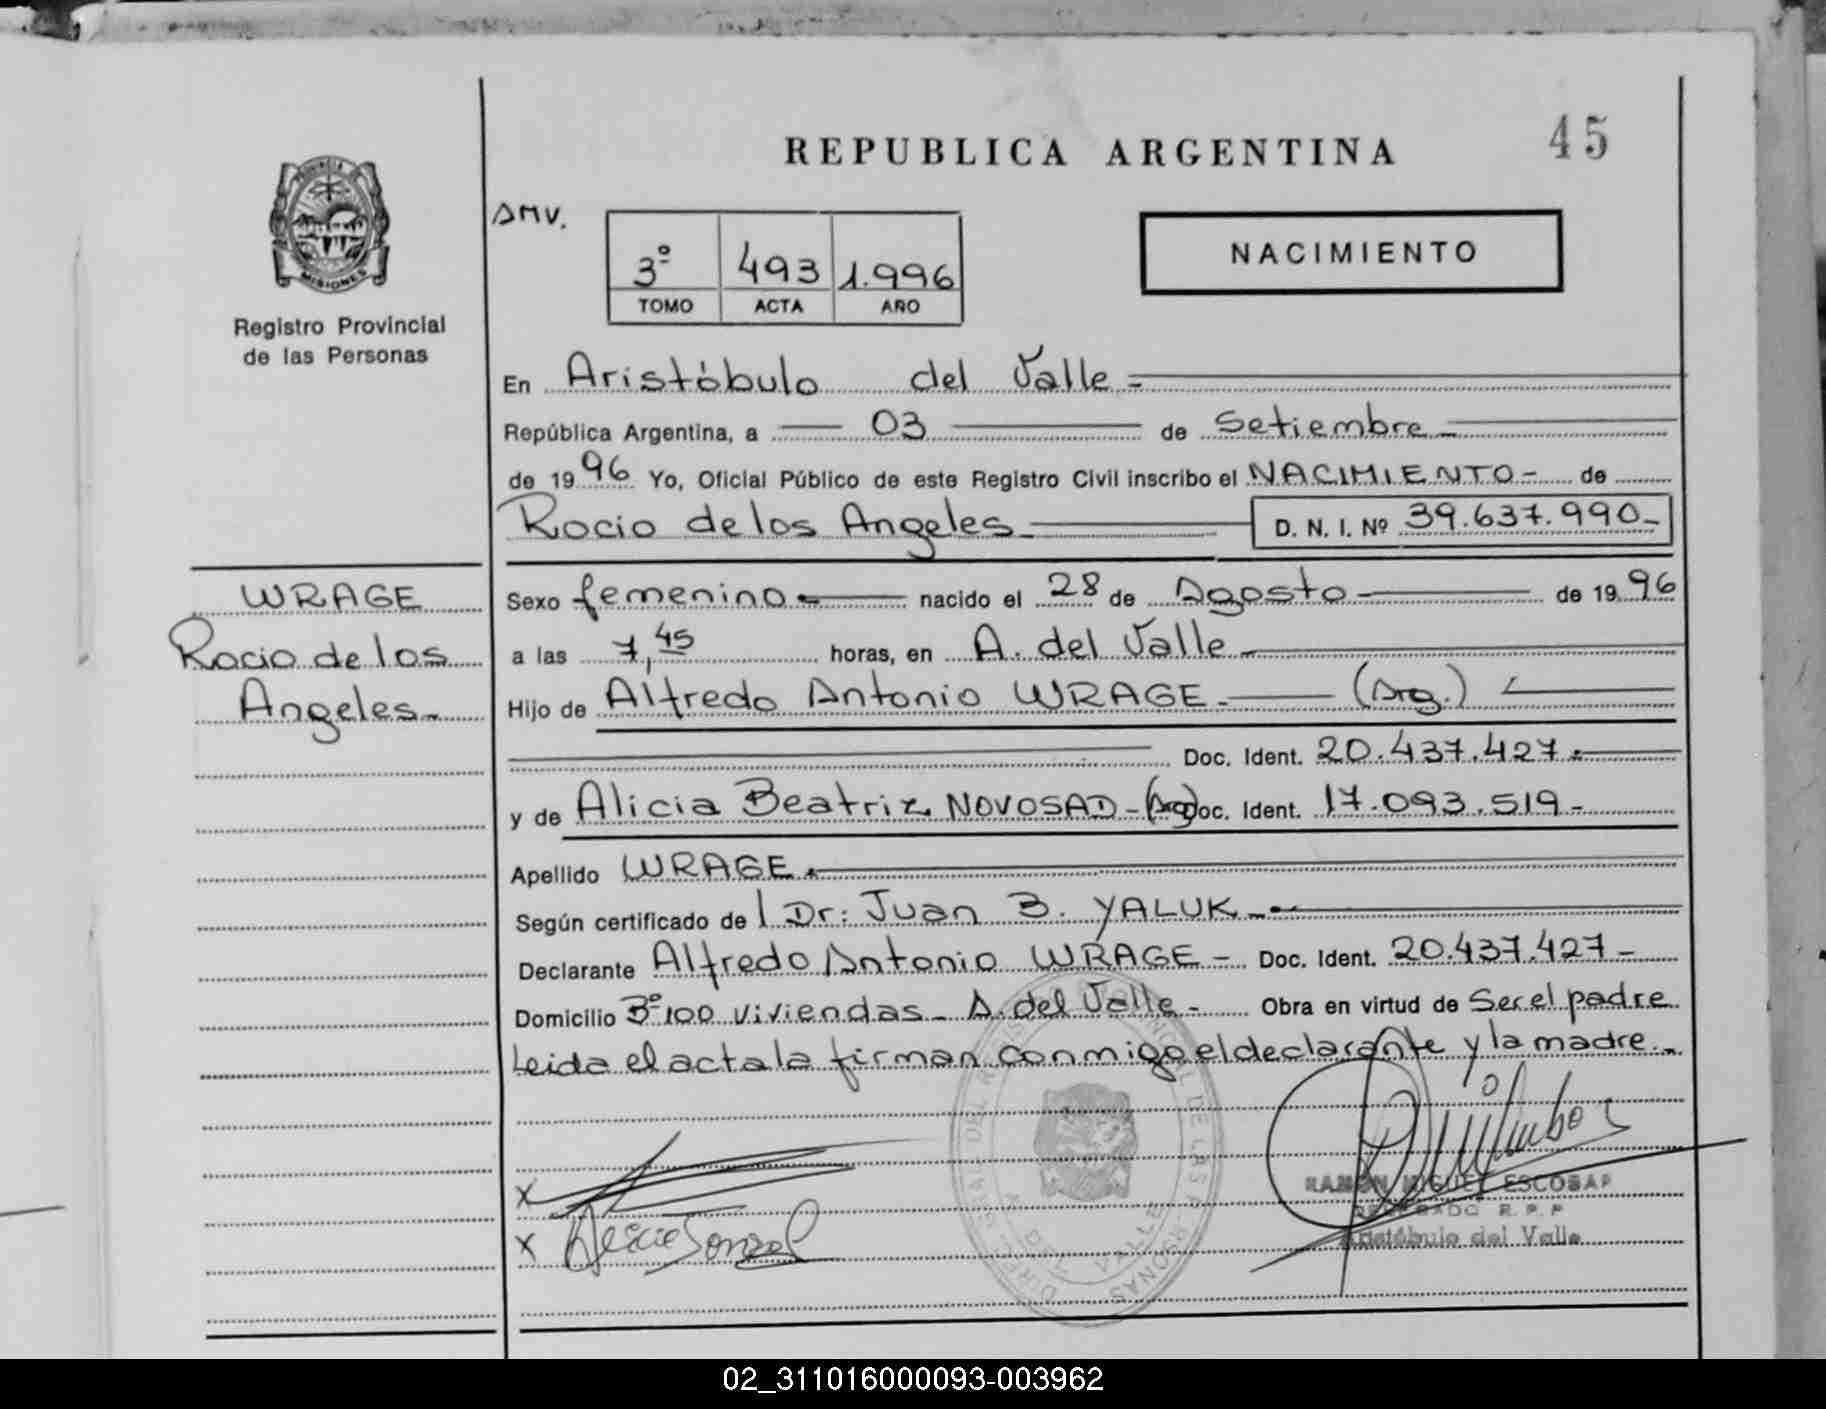 REPUBLICA ARGENTINA
45
PROVINCIA DE
MISIONES
Registro Provincial
de las Personas
AMV.
3º 493 1.996
TOMO ACTA AÑO
NACIMIENTO
En Aristóbulo del Valle-
República Argentina, a 03 de Setiembre-
de 1996 Yo, Oficial Público de este Registro Civil inscribo el NACIMIENTO- de
Rocio de los Angeles- D. N. I. Nº 39.637.990-
WRAGE
Rocio de los
Angeles-
Sexo femenino- nacido el 28 de Agosto- de 1996
a las 7,45 horas, en A. del Valle-
Hijo de Alfredo Antonio WRAGE- (Arg.)
Doc. Ident. 20.437.427.
y de Alicia Beatriz NOVOSAD-(Arg) Doc. Ident. 17.093.519-
Apellido WRAGE.
Según certificado de l Dr: Juan B. YALUK-
Declarante Alfredo Antonio WRAGE- Doc. Ident. 20.437.427-
Domicilio Bº 100 viviendas- A. del Valle- Obra en virtud de Ser el padre
Leida el acta la firman conmigo el declarante y la madre.-
X
X
RAMON MIGUEL ESCOBAR
DELEGADO R. P. P
Aristóbulo del Valle
02_311016000093-003962